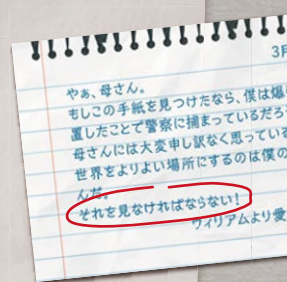 3月
やぁ、母さん。
もしこの手紙を見つけたなら、僕は爆
置したことで警察に捕まっているだろ
母さんには大変申し訳なく思っている
世界をよりよい場所にするのは僕の
んだ。
それを見なければならない!
ウィリアムより愛